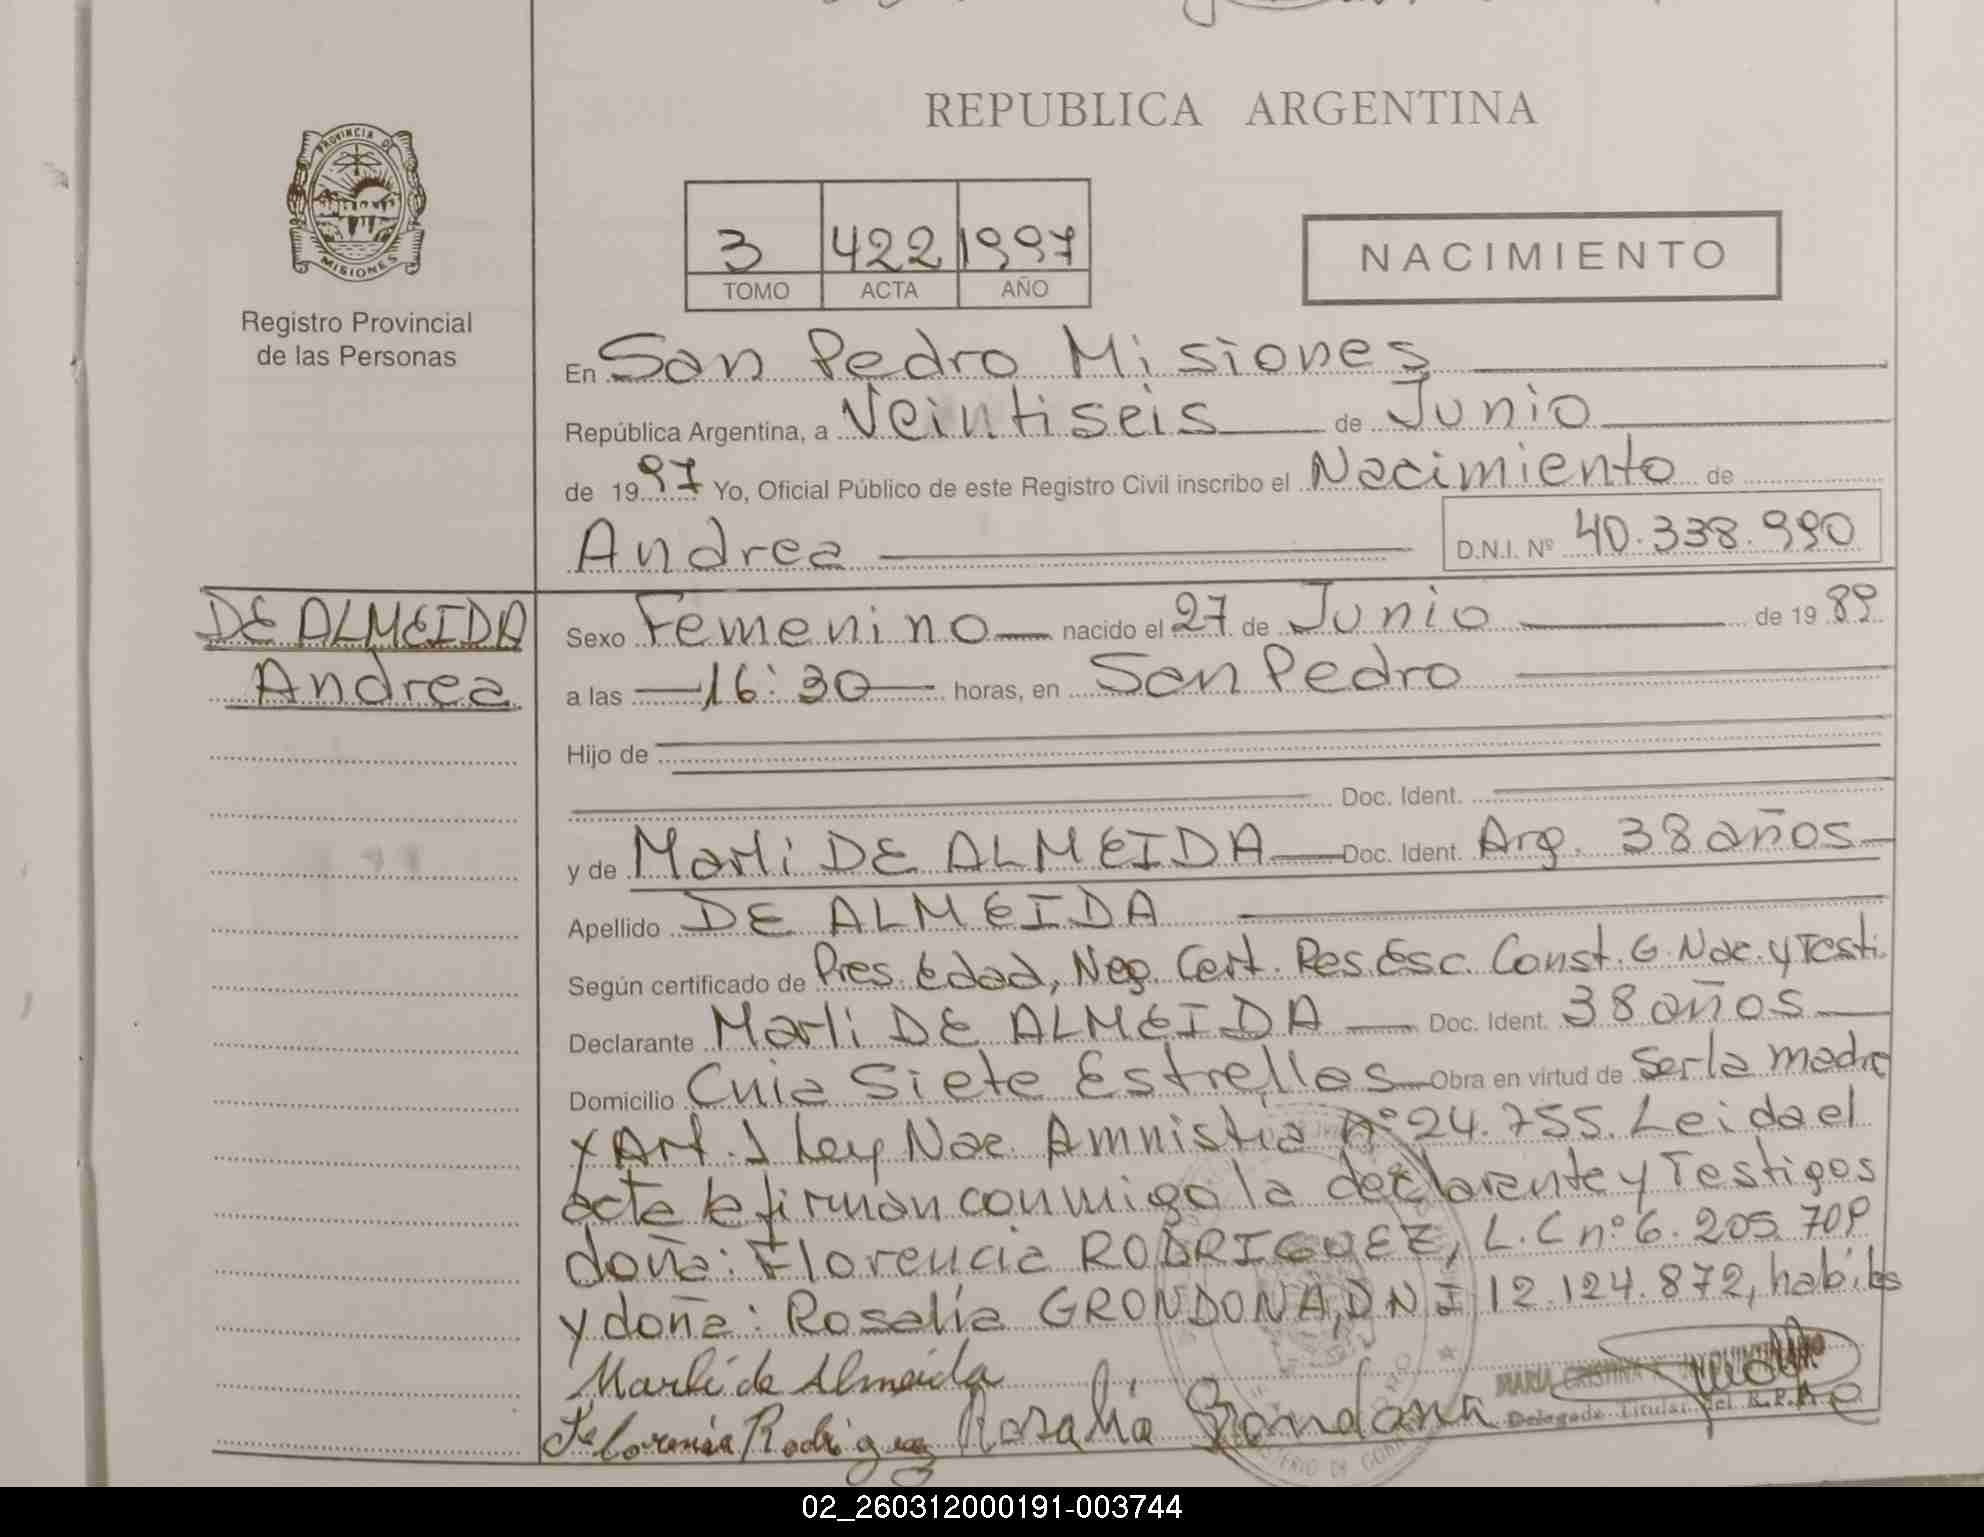 REPUBLICA ARGENTINA
PROVINCIA DE
MISIONES
Registro Provincial
de las Personas
3 422 1997
TOMO ACTA AÑO
NACIMIENTO
En San Pedro Misiones
República Argentina, a Veintiseis de Junio
de 1997 Yo, Oficial Público de este Registro Civil inscribo el Nacimiento de
Andrea D.N.I. Nº 40.338.990
DE ALMEIDA
Andrea
Sexo Femenino nacido el 27 de Junio de 1989
a las 16:30 horas, en San Pedro
Hijo de
Doc. Ident.
y de Marli DE ALMEIDA Doc. Ident. Arg. 38 años
Apellido DE ALMEIDA
Según certificado de Pres. Edad, Neg. Cert. Res. Esc. Const. G. Nac. y Testi.
Declarante Marli DE ALMEIDA Doc. Ident. 38 años
Domicilio Cuia Siete Estrellas Obra en virtud de ser la madre
y Art. 1 Ley Nac. Amnistia Nº 24.755. Leida el
acta la firman conmigo la declarante y Testigos
doña: Florencia RODRIGUEZ, L.C nº 6.205.709
y doña: Rosalía GRONDONA, DNI 12.124.872, habiles
Marli de Almeida
Florencia Rodriguez Rosalia Grondona
MARIA CRISTINA
Delegada Titular del R.P.
02_260312000191-003744